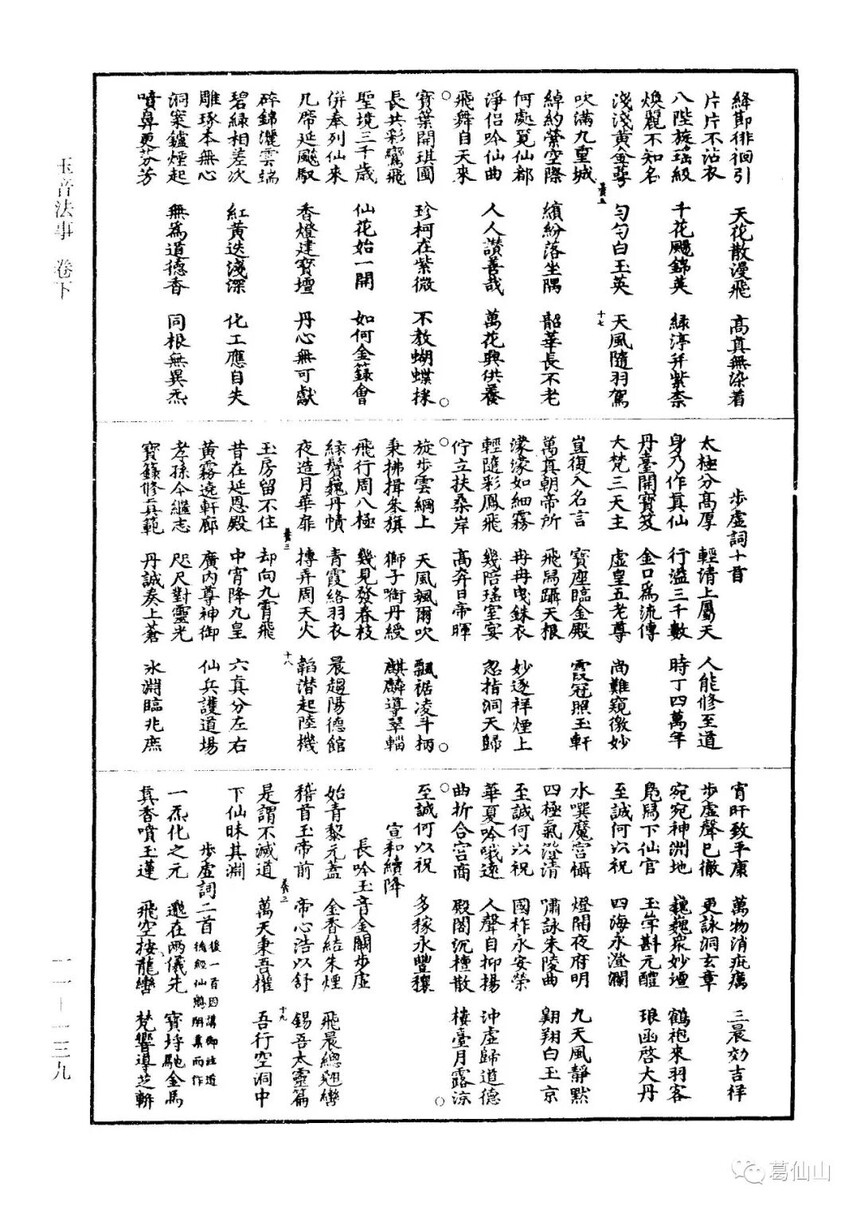 絳節徘徊引 天花散漫飛 高真無染着
片片不沾衣
八陛旋瑤級 千花颺錦英 綠渟幷紫柰
煥麗不知名
淺淺黃金蕚 勻勻白玉英 天風隨羽駕
吹滿九重城
綽約縈空際 繽紛落坐隅 韶華長不老
何處覓仙都
淨侶吟仙曲 人人讚善哉 萬花興供養
飛舞自天來
○寳葉開琪圃 珍柯在紫微 不教蝴蝶採○
長共彩鸞飛
聖境三千歲 仙花始一開 如何金籙會
併奉列仙來
几席延飈馭 香燈建寳壇 丹心無可獻
碎錦灑雲端
碧綠相差次 紅黃迭淺深 化工應自失
雕琢本無心
洞案鑪煙起 無為道德香 同根無異炁
噴鼻更芬芳
十七
步虛詞十首
太極分高厚 輕清上屬天 人能修至道
身乃作真仙 行溢三千數 時丁四萬年
丹臺開寳笈 金口為流傳
大梵三天主 虛皇五老尊 尚難窺微妙
豈復入名言 寳座臨金殿 霞冠照玉軒
萬真朝帝所 飛舄躡天根
濛濛如細霧 冉冉曳銖衣 妙逐祥煙上
輕隨彩鳳飛 幾陪瑤室宴 忽指洞天歸
佇立扶桑岸 高奔日帝暉
○旋步雲綱上 天風颯爾吹 飄裾凌斗柄○
秉拂揖朱旗 獅子㗸丹綬 麒麟導翠輜
飛行周八極 幾見發春枝
綠鬢巍丹幘 青霞絡羽衣 晨趨陽德館
夜造月華扉 摶弄周天火 韜潛起陸機
玉房留不住 却向九霄飛
十八
昔在延恩殿 中宵降九皇 六真分左右
黃霧遶軒廊 廣內尊神御 仙兵護道場
孝孫今繼志 咫尺對靈光
寳籙修真範 丹誠奏上蒼 氷淵臨兆庶
宵旰致平康 萬物消疵癘 三晨効吉祥
步虛聲已徹 更詠洞玄章
宛宛神洲地 巍巍衆妙壇 鶴袍來羽客
鳬舄下仙官 玉斝斟元醴 琅函啓大丹
至誠何以祝 四海永澄瀾
水噀魔宮懾 燈開夜府明 九天風靜默
四極氣澄清 嘯詠朱陵曲 翺翔白玉京
至誠何以祝 國祚永安榮
華夏吟哦遠 人聲自抑揚 沖虛歸道德
曲折合宮商 殿閣沉檀散 樓臺月露涼
○至誠何以祝 多稼永豐穰○
宣和續降
長吟玉音金闕步虛
始青黎元蓋 金香結朱煙 飛晨總翅轡
稽首玉帝前 帝心浩以舒 錫吾太靈篇
是謂不滅道 萬天秉吾權 吾行空洞中
下仙昧其淵
十九
步虛詞二首
一炁化之元 邈在兩儀先 寳持馳金馬
真香噴玉蓮 飛空按龍轡 梵響導芝軿
玉音法事 卷下
一一—一三九
葛仙山